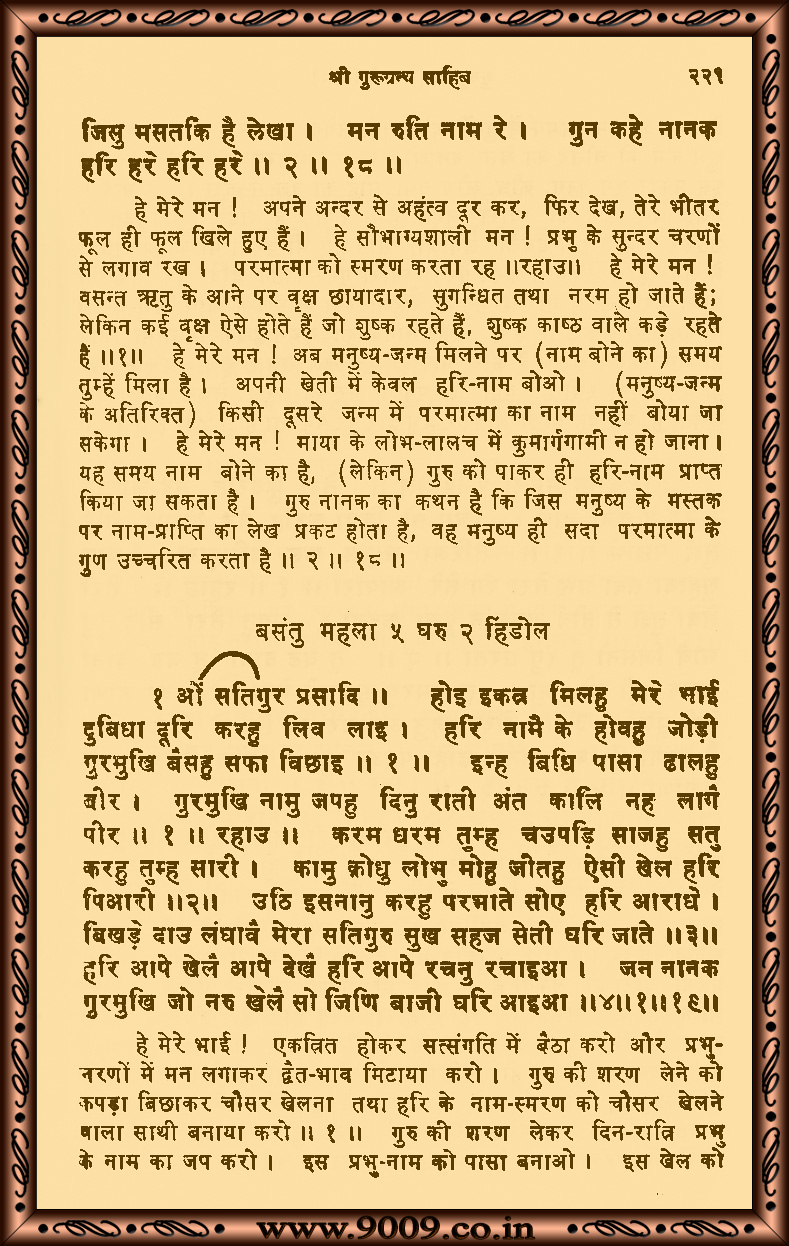 श्री गुरूग्रन्थ साहिब २२१
जिसु मसतकि है लेखा । मन रुति नाम रे । गुन कहे नानक
हरि हरे हरि हरे ॥ २ ॥ १८ ॥
हे मेरे मन ! अपने अन्दर से अहंत्व दूर कर, फिर देख, तेरे भीतर
फूल ही फूल खिले हुए हैं । हे सौभाग्यशाली मन ! प्रभु के सुन्दर चरणों
से लगाव रख । परमात्मा को स्मरण करता रह ॥रहाउ॥ हे मेरे मन !
वसन्त ऋतु के आने पर वृक्ष छायादार, सुगन्धित तथा नरम हो जाते हैं;
लेकिन कई वृक्ष ऐसे होते हैं जो शुष्क रहते हैं, शुष्क काष्ठ वाले कड़े रहते
हैं ॥१॥ हे मेरे मन ! अब मनुष्य-जन्म मिलने पर (नाम बोने का) समय
तुम्हें मिला है । अपनी खेती में केवल हरि-नाम बोओ । (मनुष्य-जन्म
के अतिरिक्त) किसी दूसरे जन्म में परमात्मा का नाम नहीं बोया जा
सकेगा । हे मेरे मन ! माया के लोभ-लालच में कुमार्गगामी न हो जाना ।
यह समय नाम बोने का है, (लेकिन) गुरु को पाकर ही हरि-नाम प्राप्त
किया जा सकता है । गुरु नानक का कथन है कि जिस मनुष्य के मस्तक
पर नाम-प्राप्ति का लेख प्रकट होता है, वह मनुष्य ही सदा परमात्मा के
गुण उच्चरित करता है ॥ २ ॥ १८ ॥
बसंतु महला ५ घरु २ हिंडोल
१ ओं सतिगुर प्रसादि ॥ होइ इकत्र मिलहु मेरे भाई
दुबिधा दूरि करहु लिव लाइ । हरि नामै के होवहु जोड़ी
गुरमुखि बैसहु सफा विछाइ ॥ १ ॥ इन्ह बिधि पासा ढालहु
बीर । गुरमुखि नामु जपहु दिनु राती अंत कालि नह लागै
पीर ॥ १ ॥ रहाउ ॥ करम धरम तुम्ह चउपड़ि साजहु सतु
करहु तुम्ह सारी । कामु क्रोधु लोभु मोहु जीतहु ऐसी खेल हरि
पिआरी ॥२॥ उठि इसनानु करहु परभाते सोए हरि आराधे ।
बिखड़े दाउ लंघावै मेरा सतिगुरु सुख सहज सेती घरि जाते ॥३॥
हरि आपे खेलै आपे देखै हरि आपे रचनु रचाइआ । जन नानक
गुरमुखि जो नरु खेलै सो जिणि बाजी घरि आइआ ॥४॥१॥१९॥
हे मेरे भाई ! एकत्रित होकर सत्संगति में बैठा करो और प्रभु-
चरणों में मन लगाकर द्वैत-भाव मिटाया करो । गुरु की शरण लेने को
कपड़ा बिछाकर चौसर खेलना तथा हरि के नाम-स्मरण को चौसर खेलने
वाला साथी बनाया करो ॥ १ ॥ गुरु की शरण लेकर दिन-रात्रि प्रभु
के नाम का जप करो । इस प्रभु-नाम को पासा बनाओ । इस खेल को
www.9009.co.in